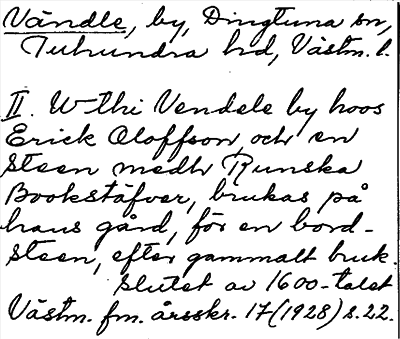 Vändle, by, Dingtuna sn,
Tuhundra hd, Västm. l.
II. W-thi Vendele by hoos
Erick Oloffson, och en
steen medh Runska
Bookstäfver, brukas på
hans gård, för en bord-
steen, efter gammalt bruk.
slutet av 1600-talet
Västm. fm. årsskr. 17 (1928) s. 22.